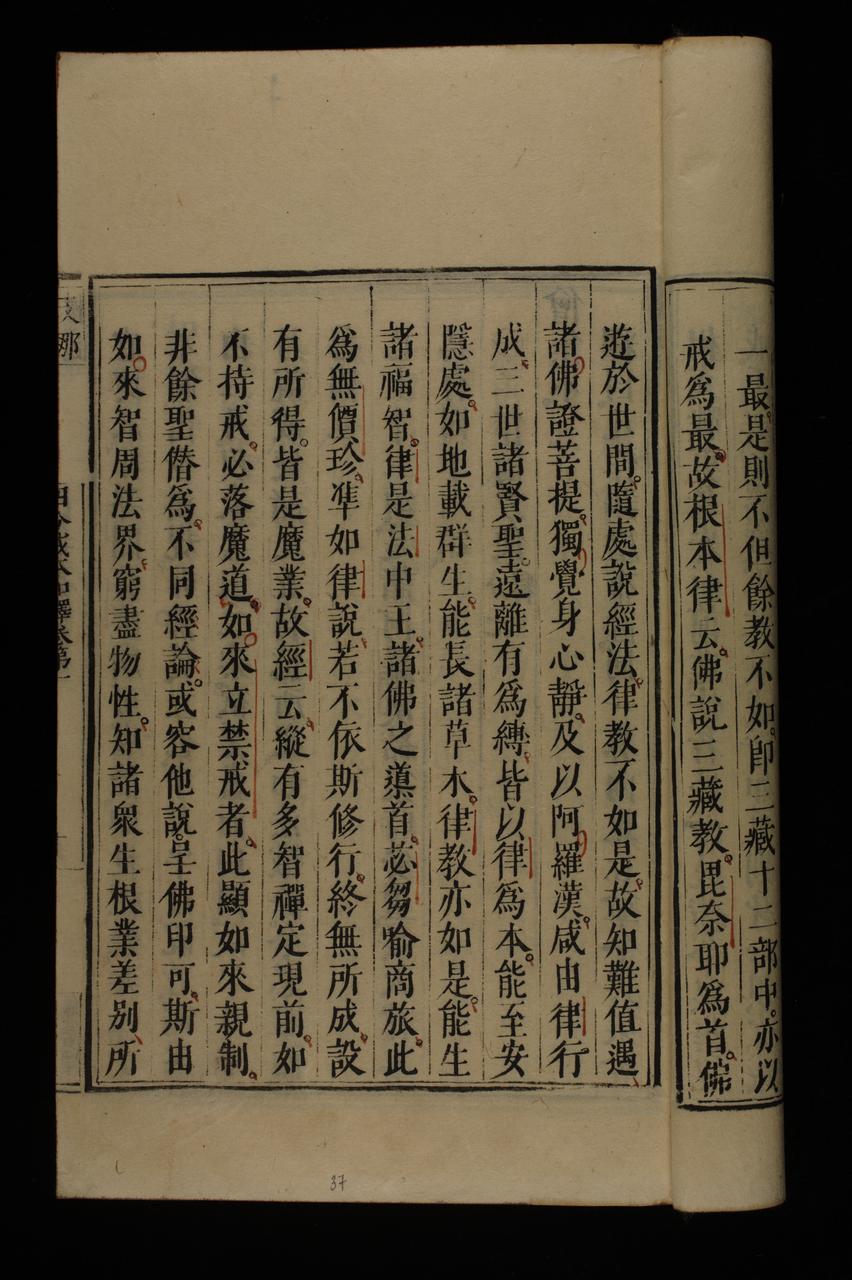 一最是則不但餘教不如卽三藏十二部中亦以
戒爲最故根本律云佛說三藏教毘奈耶爲首佛
遊於世間隨處說經法律教不如是故知難值遇
諸佛證菩提獨覺身心靜及以阿羅漢咸由律行
成三世諸賢聖遠離有爲縛皆以律爲本能至安
隱處如地載群生能長諸草木律教亦如是能生
諸福智律是法中王諸佛之導首苾芻喻商旅此
爲無價珍準如律說若不依斯修行終無所成設
有所得皆是魔業故經云縱有多智禪定現前如
不持戒必落魔道如來立禁戒者此顯如來親制
非餘聖僭爲不同經論或容他說呈佛印可斯由
如來智周法界窮盡物性知諸衆生根業差別所
37